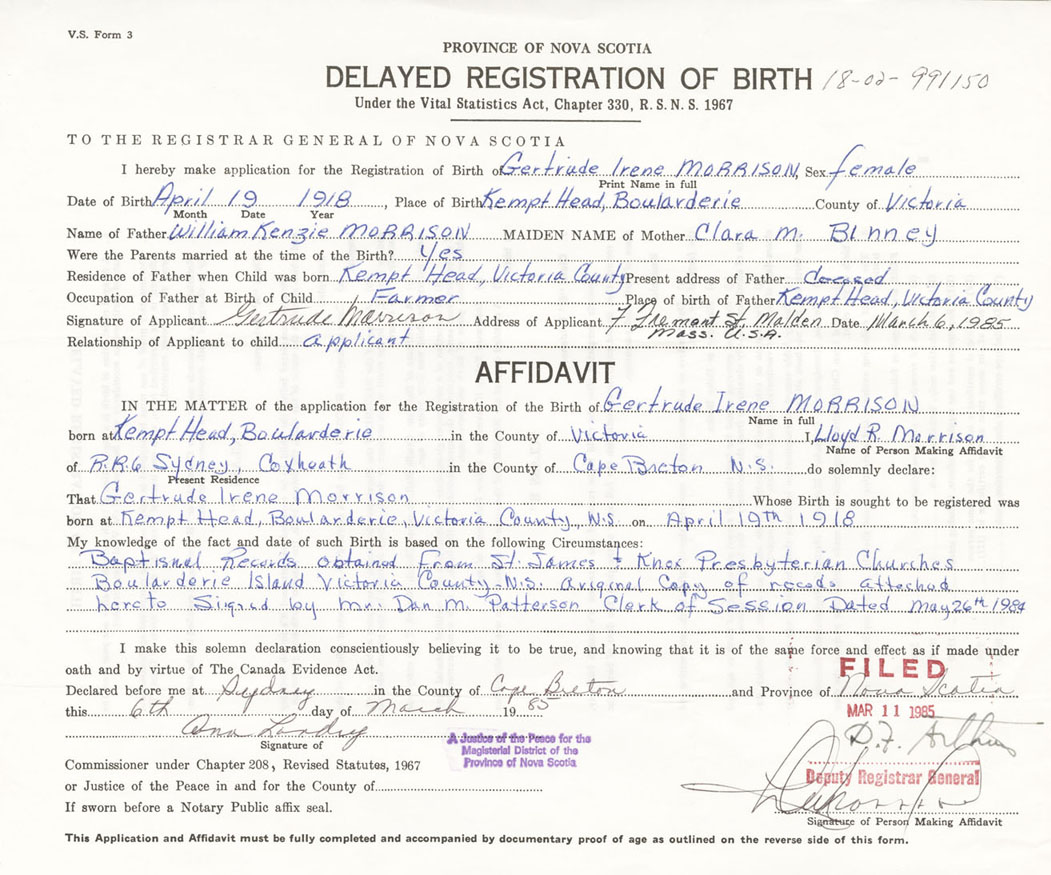 V.S. Form 3
PROVINCE OF NOVA SCOTIA
DELAYED REGISTRATION OF BIRTH 18-02-991150
Under the Vital Statistics Act, Chapter 330, R.S.N.S. 1967
TO THE REGISTRAR GENERAL OF NOVA SCOTIA
I hereby make application for the Registration of Birth of Gertrude Irene MORRISON, Sex female
Print Name in full
Date of Birth April 19 1918, Place of Birth Kempt Head, Boularderie County of Victoria
Month Date Year
Name of Father William Kenzie MORRISON MAIDEN NAME of Mother Clara M. BINNEY
Were the Parents married at the time of the Birth? Yes
Residence of Father when Child was born Kempt Head, Victoria County Present address of Father deceased
Occupation of Father at Birth of Child Farmer Place of birth of Father Kempt Head, Victoria County
Signature of Applicant Gertrude Morrison Address of Applicant 7 Tremont St. Malden Date March 6, 1985
Mass. U.S.A.
Relationship of Applicant to child applicant
AFFIDAVIT
IN THE MATTER of the application for the Registration of the Birth of Gertrude Irene MORRISON
Name in full
born at Kempt Head, Boularderie in the County of Victoria I, Lloyd R. Morrison
Name of Person Making Affidavit
of R.R.6 Sydney, Coxheath in the County of Cape Breton N.S. do solemnly declare:
Present Residence
That Gertrude Irene Morrison Whose Birth is sought to be registered was
born at Kempt Head, Boularderie, Victoria County, N.S. on April 19th 1918
My knowledge of the fact and date of such Birth is based on the following Circumstances:
Baptismal Records obtained From St. James + Knox Presbyterian Churches
Boularderie Island Victoria County-N.S. Original Copy of records attached
hereto Signed by Mr. Dan M. Patterson Clerk of Session Dated May 26th 1984
I make this solemn declaration conscientiously believing it to be true, and knowing that it is of the same force and effect as if made under
oath and by virtue of The Canada Evidence Act.
FILED
Declared before me at Sydney in the County of Cape Breton and Province of Nova Scotia
this 6th day of March 1985
MAR 11 1985
Ann Landry
D.F. Arthur
Signature of
A Justice of the Peace for the
Magisterial District of the
Province of Nova Scotia
Commissioner under Chapter 208, Revised Statutes, 1967
Deputy Registrar General
or Justice of the Peace in and for the County of
If sworn before a Notary Public affix seal.
Signature of Person Making Affidavit
This Application and Affidavit must be fully completed and accompanied by documentary proof of age as outlined on the reverse side of this form.